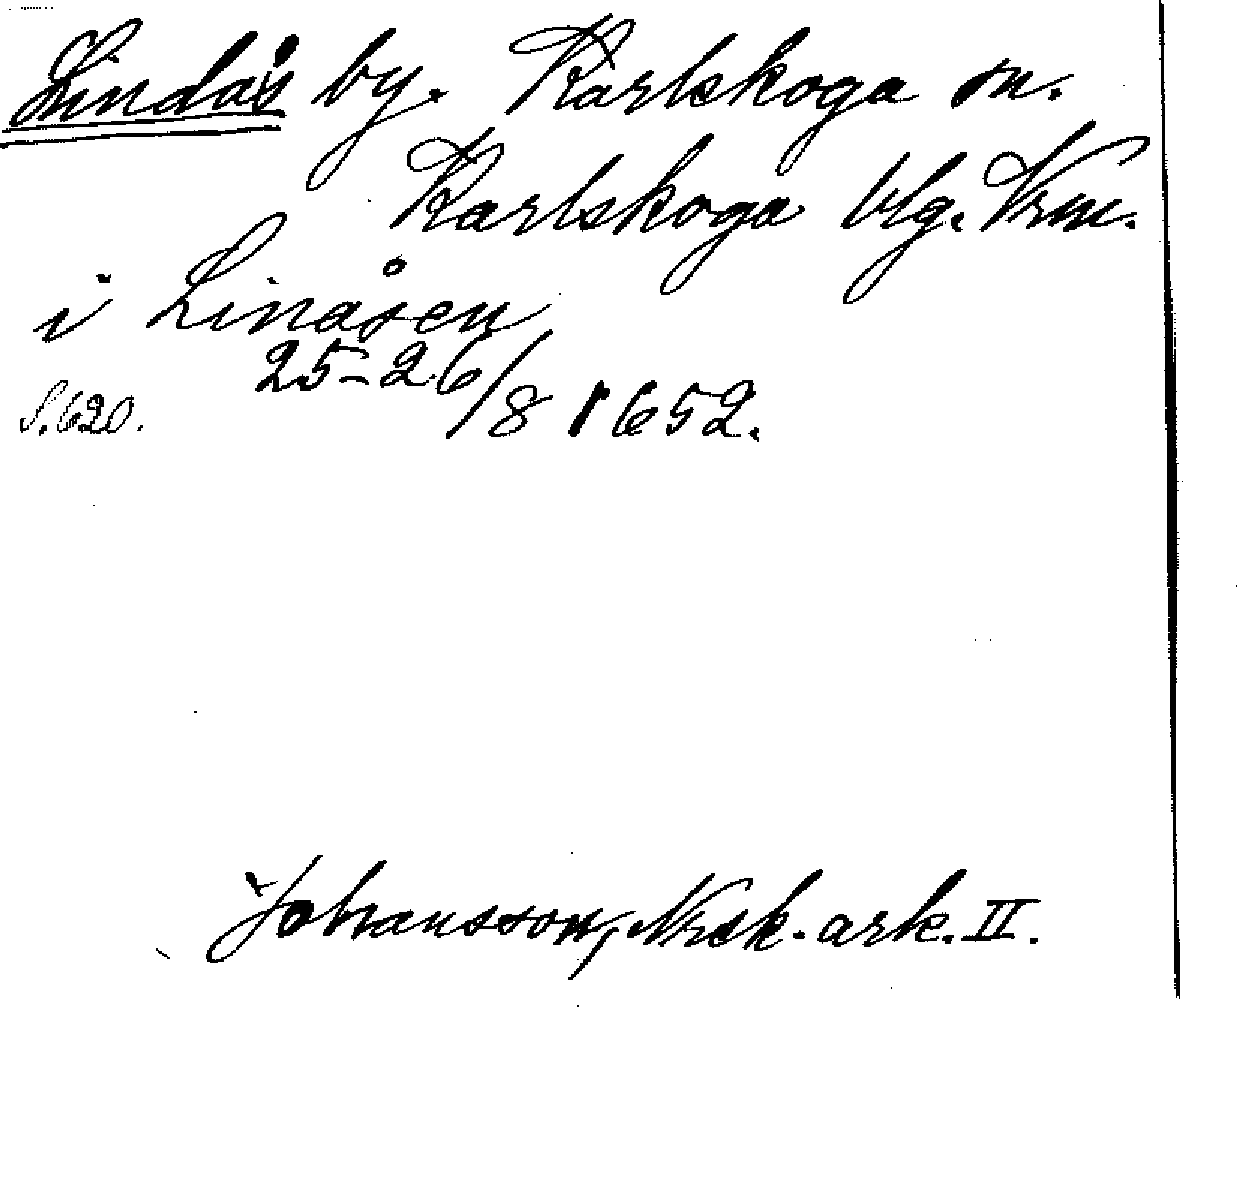 Lindås by. Karlskoga sn.
Karlskoga blg. Vrm.
i Linåsen
25-26/8 1652.
S. 620.
Johansson, Nrsk. ark. II.